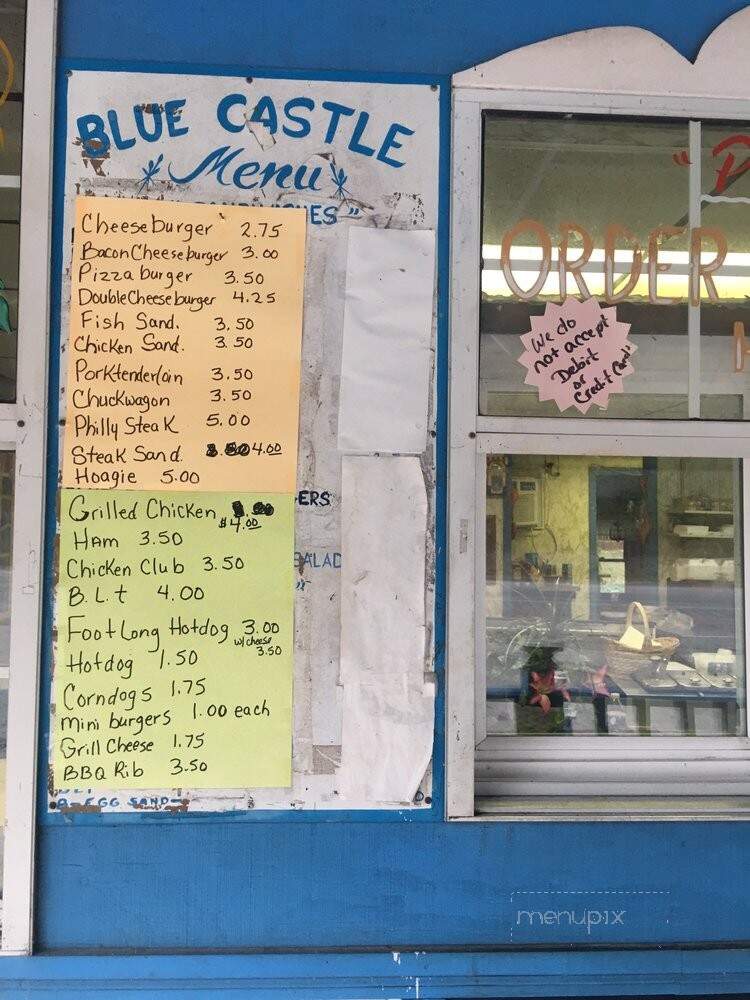 BLUE CASTLE
Menu
ES"
Cheeseburger 2.75
Bacon Cheeseburger 3.00
Pizza burger 3.50
Double Cheeseburger 4.25
Fish Sand. 3.50
Chicken Sand. 3.50
Porktenderloin 3.50
Chuckwagon 3.50
Philly Steak 5.00
Steak Sand. 4.00
Hoagie 5.00
Grilled Chicken
$4.00
Ham 3.50
Chicken Club 3.50
B.L.t 4.00
Foot Long Hotdog 3.00
w/cheese
3.50
Hotdog 1.50
Corndogs 1.75
mini burgers 1.00 each
Grill Cheese 1.75
BBQ Rib 3.50
ERS
ALAD
EGG SAND
ORDER
We do
not accept
Debit
or
Credit Cards
menupix